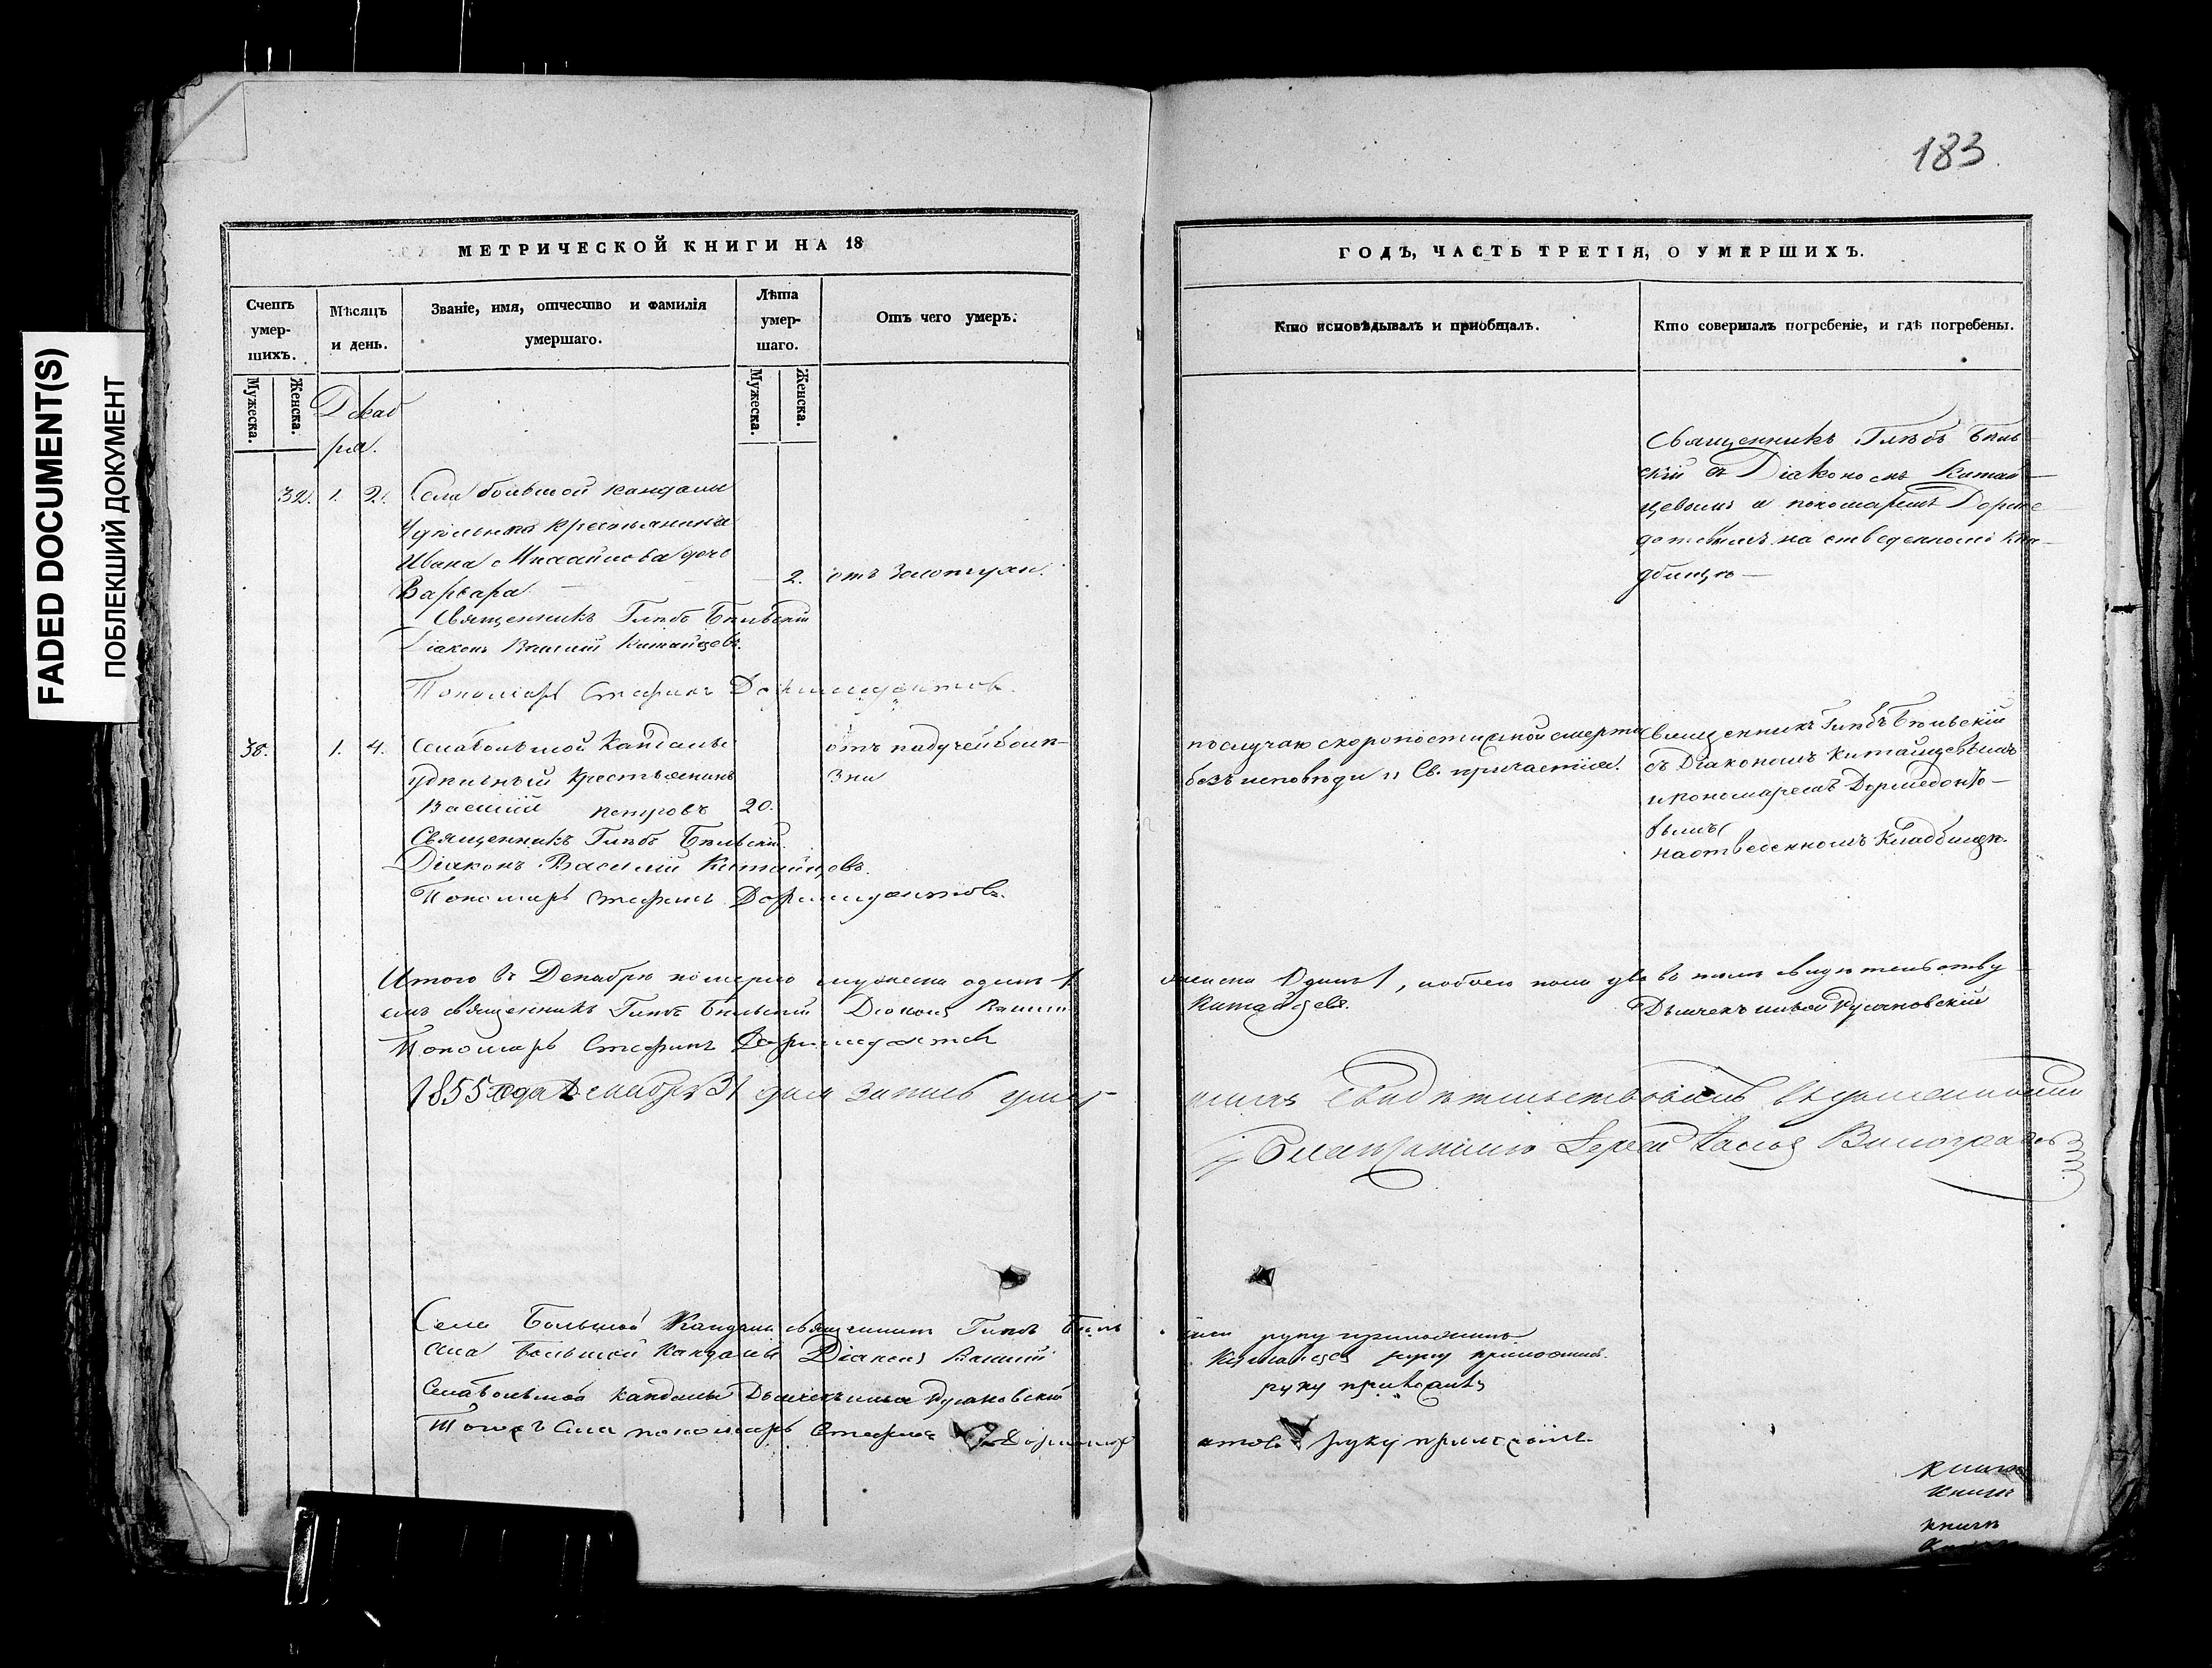 183
FADED DOCUMENT(S)
ПОБЛЕКШИЙ ДОКУМЕНТ
МЕТРИЧЕСКОЙ КНИГИ НА 18
Счетъ умер-шихъ.
Мужеска.
Женска.
Мѣсяцъ и день.
Званіе, имя, отчество и фамилія умершаго.
Лѣта умер-шаго.
Мужеска.
Женска.
Отъ чего умеръ.
ГОДЪ, ЧАСТЬ ТРЕТІЯ, О УМЕРШИХЪ.
Кто исповѣдывалъ и пріобщалъ.
Кто совершалъ погребеніе, и гдѣ погребены.
Декаб
ря.
32. 1. 2. Села большой кандалы
Удѣльнаго крестьянина
Ивана Михайлова дочь
Варвара 2. отъ Золотухи.
Священникъ Глѣбъ Бѣльскій
Діаконъ Василій Китайцевъ.
Пономарь Стефанъ Доримедонтовъ.
Священникъ Глѣбъ Бѣль
скій съ Діакономъ Китай
цевымъ и пономаремъ Дориме
донтовымъ на отведенномъ кла
дбищѣ
38. 1. 4. Села Большой Кандалы отъ падучей болѣ
удѣльный крестьянинъ зни
Василій петровъ 20.
Священникъ Глѣбъ Бѣльскій.
Діаконъ Василій Китайцевъ.
Пономарь Стефанъ Доримедонтовъ.
по случаю скоропостижной смерти
безъ исповѣди и Св. причастія.
священникъ Глѣбъ Бѣльскій
съ Діакономъ Китайцевымъ
и пономаремъ Дормедонто
вымъ
на отведенномъ Кладбищѣ.
Итого въ Декабрѣ померло мужеска одинъ 1 женска Одинъ 1, обоего пола два въ томъ свидѣтельству
емъ священникъ Глѣбъ Бѣльскій Діаконъ Василій Китайцевъ. Дьячекъ
Пономарь Стефанъ Доримедонтовъ
1855 года Декабря 31 дня запись умер шихъ свидѣтельствовалъ
Благочинный Іерей Виноградовъ
Села Большой Кандалы священникъ Глѣбъ Бѣль скій руку приложилъ
Села Большой Кандалы Діаконъ Василій Китайцевъ руку приложилъ.
Села Большой кандалы Дьячекъ руку приложилъ
Тогожъ Села пономарь Стефанъ Доримед онтовъ руку приложилъ.